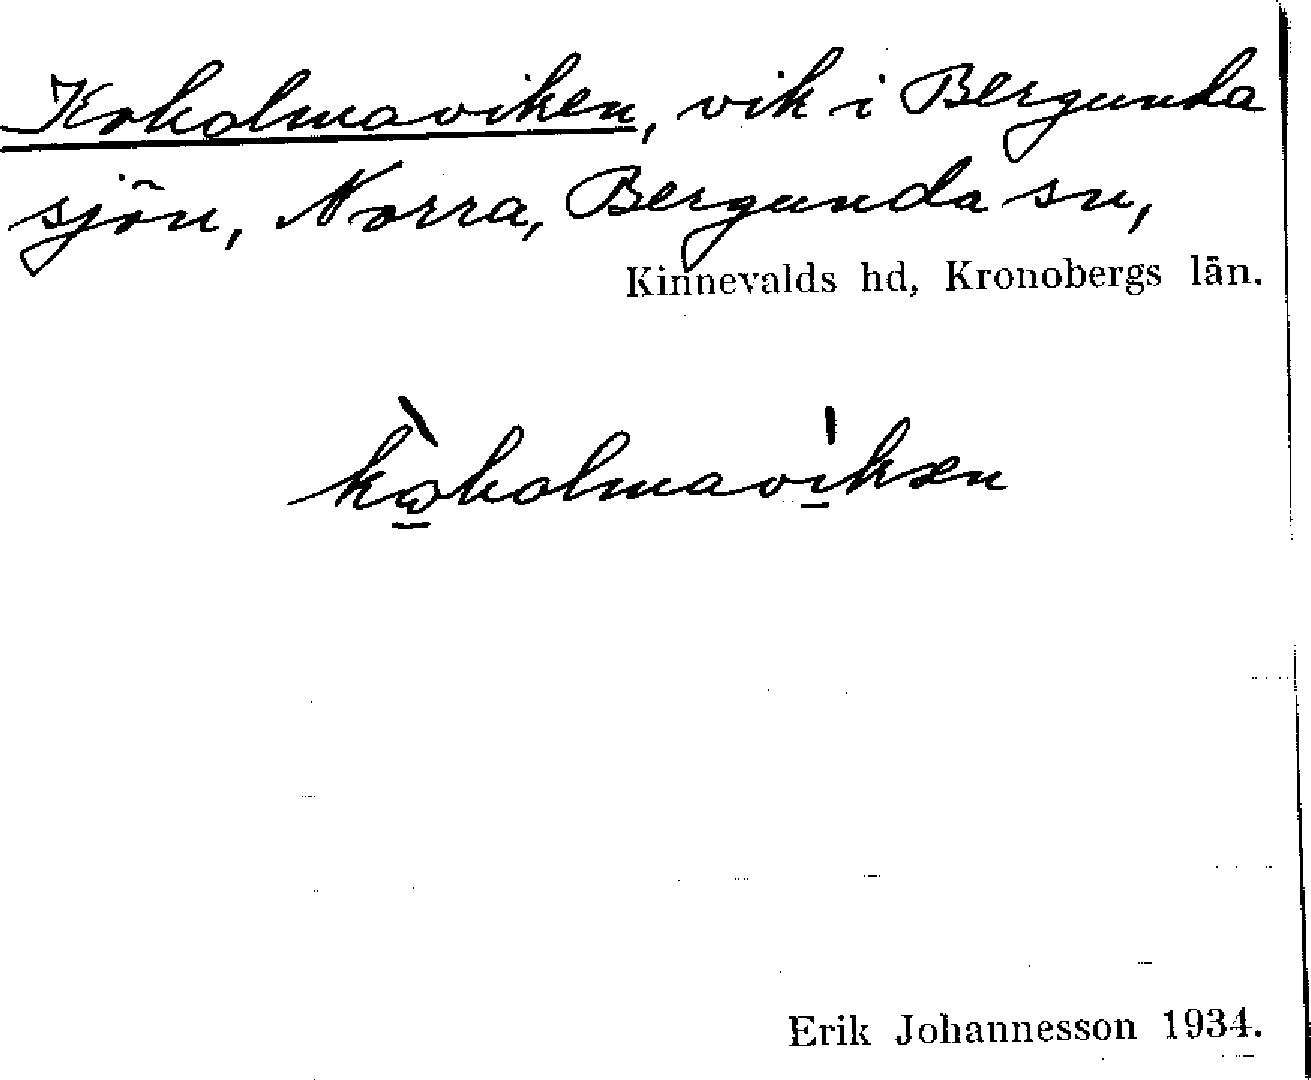 Kokolmaviken, vik i Bergunda
sjön, Norra, Bergunda sn,
Kinnevalds hd, Kronobergs län.
Erik Johannesson 1934.